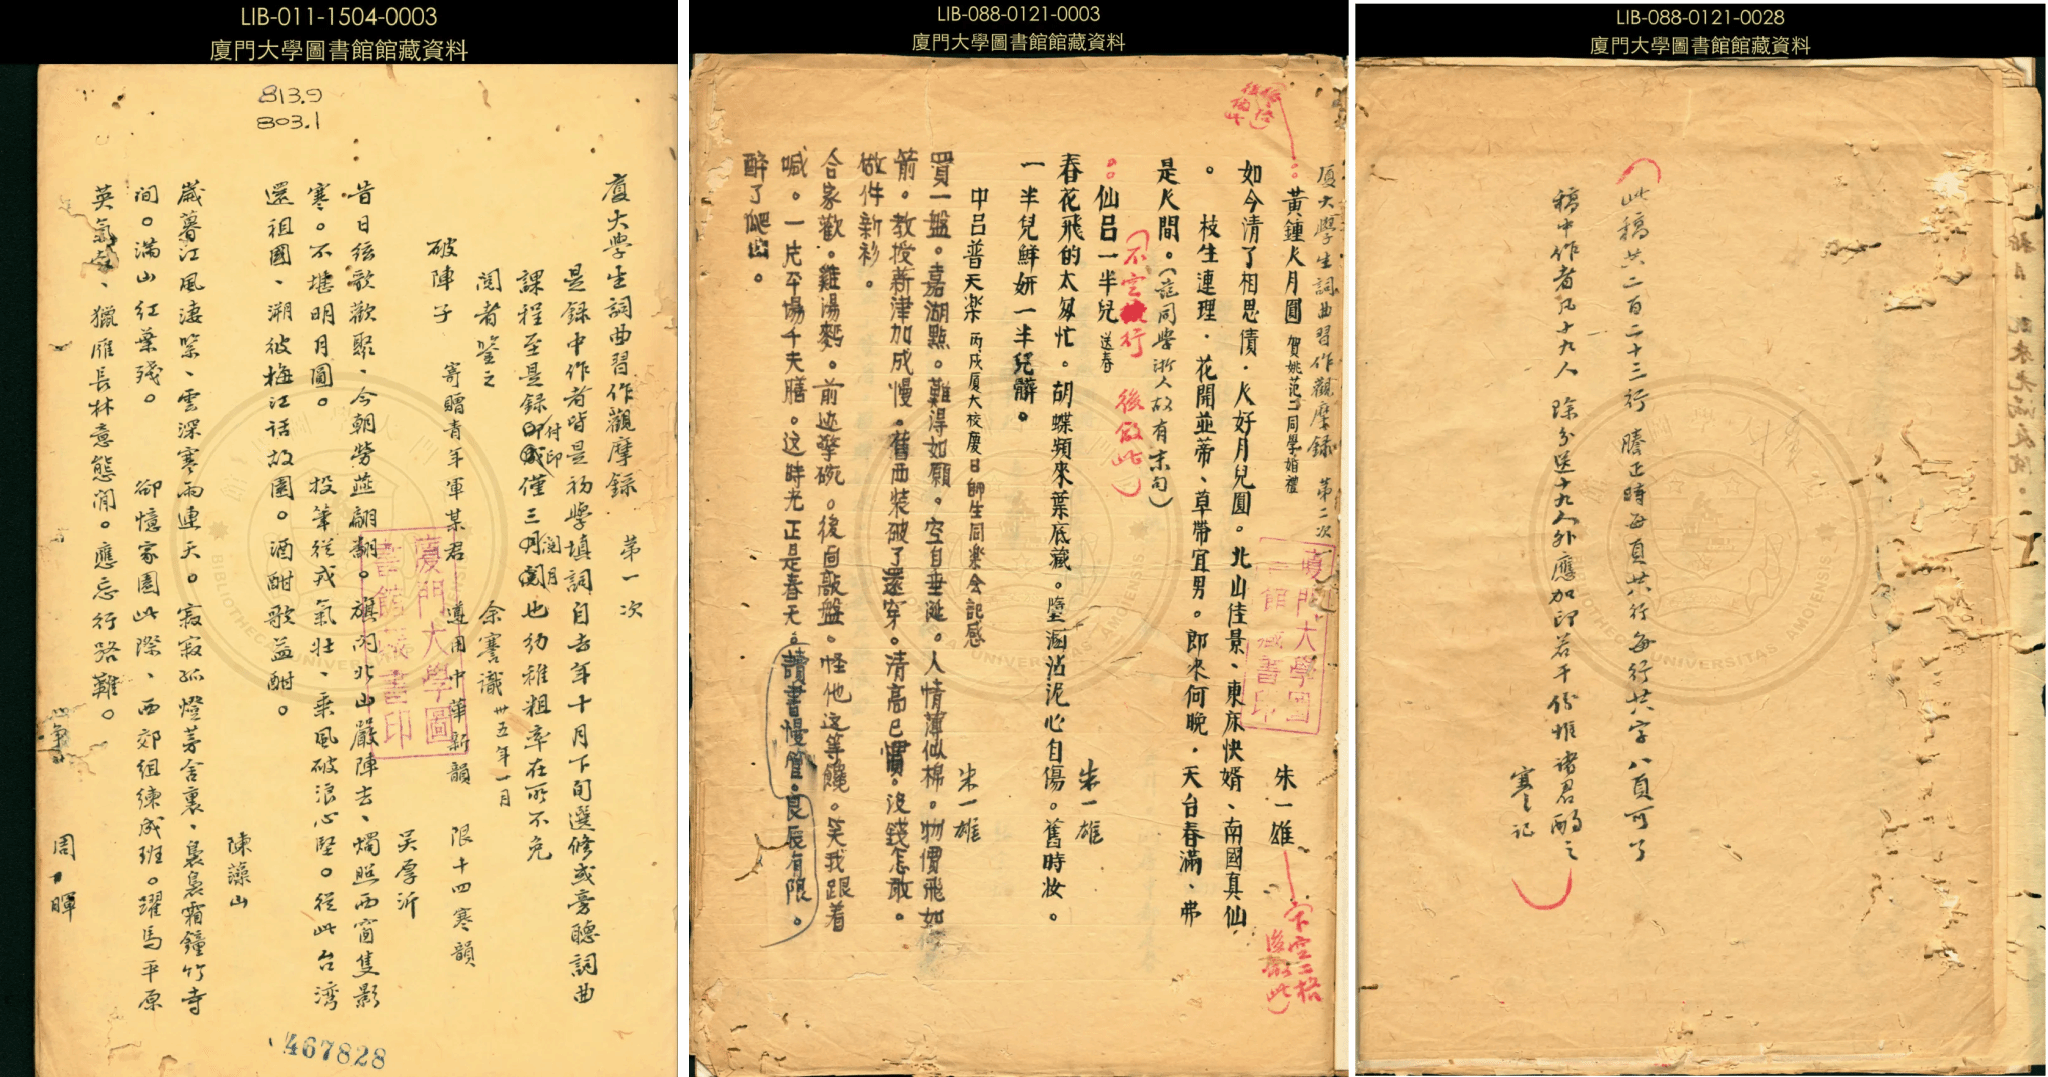 LIB-011-1504-0003
廈門大學圖書館館藏資料
813.9
803.1
廈大學生詞曲習作觀摩錄 第一次
是錄中作者皆是初學填詞自去年十月下旬選修或旁聽詞曲
課程至是錄付印僅三閱月也幼稚粗率在所不免
閱者鑒之 余謇識 卅五年一月
破陣子 寄贈青年軍某君 遵用中華新韻 限十四寒韻
吳厚沂
昔日弦歌歡聚、今朝勞燕翩翩。旗閃北山嚴陣去、燭照西窗隻影
寒。不堪明月圓。 投筆從戎氣壯、乘風破浪心堅。從此台湾
還祖國、溯彼梅江話故園。酒酣歌益酣。
陳藻山
歲暮江風淒緊、雲深寒雨連天。寂寂孤燈茅舍裏、裊裊霜鐘竹寺
間。滿山紅葉殘。 卻憶家園此際、西郊組練成班。躍馬平原
英氣、獵雁長林意態閒。應忘行路難。
周日暉
467828
廈門大學圖書館藏書印
LIB-088-0121-0003
廈門大學圖書館館藏資料
廈大學生詞曲習作觀摩錄 第二次
黃鍾人月圓 賀姚范二同學婚禮 朱一雄
下空二格
後倣此)
如今清了相思債．人好月兒圓。北山佳景、東床快婿、南國真仙
。 枝生連理．花開並蒂、草帶宜男。郎來何晚．天台春滿、弗
是人間。(范同學浙人故有末句)
(不空行 後倣此)
仙呂一半兒 送春 朱一雄
春花飛的太匆忙。胡蝶頻來葉底藏。墮溷沾泥心自傷。舊時妝。
一半兒鮮妍一半兒髒。
中呂普天樂 丙戌廈大校慶日師生同樂会記感 朱一雄
買一盤。嘉湖點。難得如願。空自垂涎。人情薄似棉。物價飛如
箭。教授薪津加成慢。舊西装破了還穿。清高已慣。沒錢怎敢。
做件新衫。
合家歡。雞湯麪。前边擎碗。後面敲盤。怪他这等饞。笑我跟着
喊。一片平場千夫膳。这時光正是春天。讀書慢管。良辰有限。
醉了爬出。
廈門大學圖書館藏書印
LIB-088-0121-0028
廈門大學圖書館館藏資料
此稿共二百二十三行 謄正時每頁廿八行每行廿八字八頁可了
稿中作者凡十九人 除分送十九人外應加印若干份惟諸君酌之
謇記